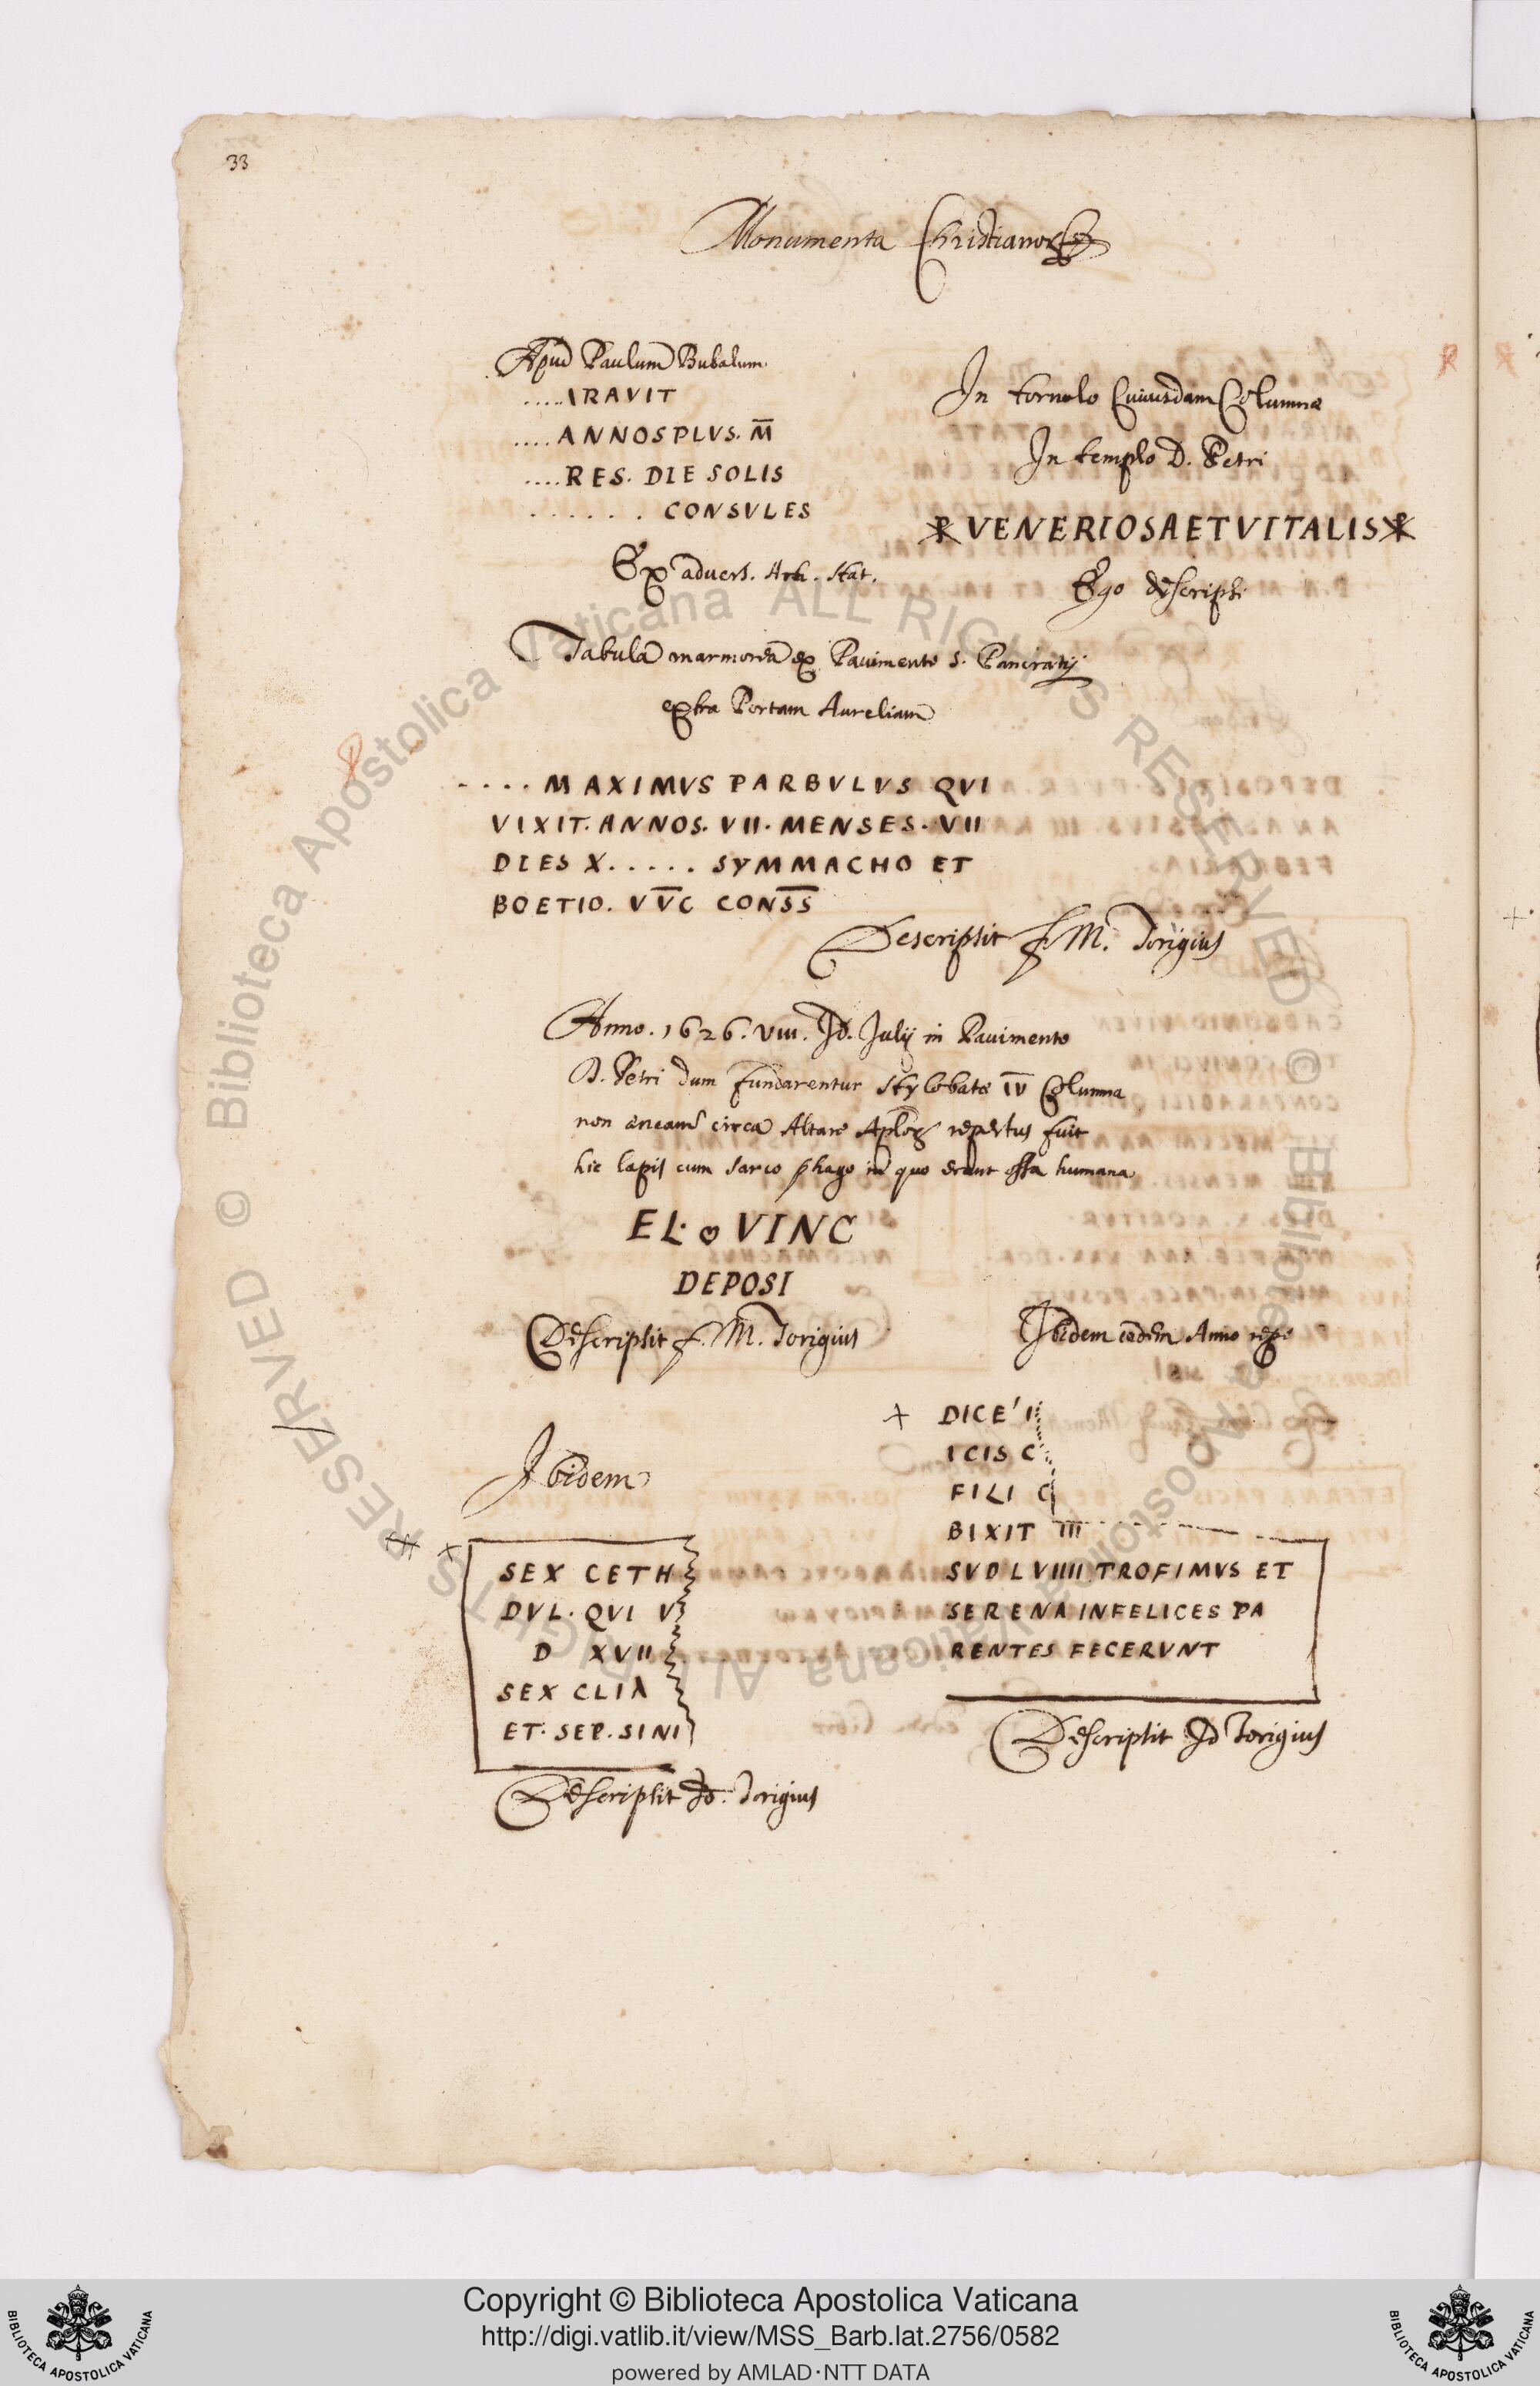 33
Monumenta Christianoꝝ
Apud Paulum Bubalum
.....IRAVIT
....ANNOS PLVS. M̅
....RES. DIE SOLIS
. . . . . . CONSVLES
Ex advers. Ach. Stat.
In tornolo Cuiusdam Columnæ
In templo D. Petri
☧ VENERIOSA ET VITALIS ☧
Ego descripsi
Tabula marmorea ex Pauimento S. Pancratij
extra Portam Aureliam
. . . . MAXIMVS PARBVLVS QVI
VIXIT. ANNOS. VII. MENSES. VII
DIES X. . . . . SYMMACHO ET
BOETIO. VV̅C CONS̅S̅
Descripsit f. M. Torigius
Anno. 1626. VIII. Id. Julij in Pauimento
D. Petri dum fundarentur stylobatæ IV̅ Columna
non circa Altare Aploꝝ repertus fuit
hic lapis cum sarco phago in quo erant ossa humana
EL. VINC
DEPOSI
Descripsit f. M. Torigius
Ibidem eodem Anno repe
+ DICE'I
ICIS C
FILI C
BIXIT III
SVD LVIIII TROFIMVS ET
SERENA INFELICES PA
RENTES FECERVNT
Descriptit Id Torigius
Ibidem
SEX CETH
DVL. QVI V
D XVII
SEX CLIA
ET. SEP. SINI
Descripsit Id. Torigius
Copyright © Biblioteca Apostolica Vaticana
http://digi.vatlib.it/view/MSS_Barb.lat.2756/0582
powered by AMLAD·NTT DATA
BIBLIOTECA APOSTOLICA VATICANA
BIBLIOTECA APOSTOLICA VATICANA
© Biblioteca Apostolica Vaticana ALL RIGHTS RESERVED © Biblioteca Apostolica Vaticana ALL RIGHTS RESERVED